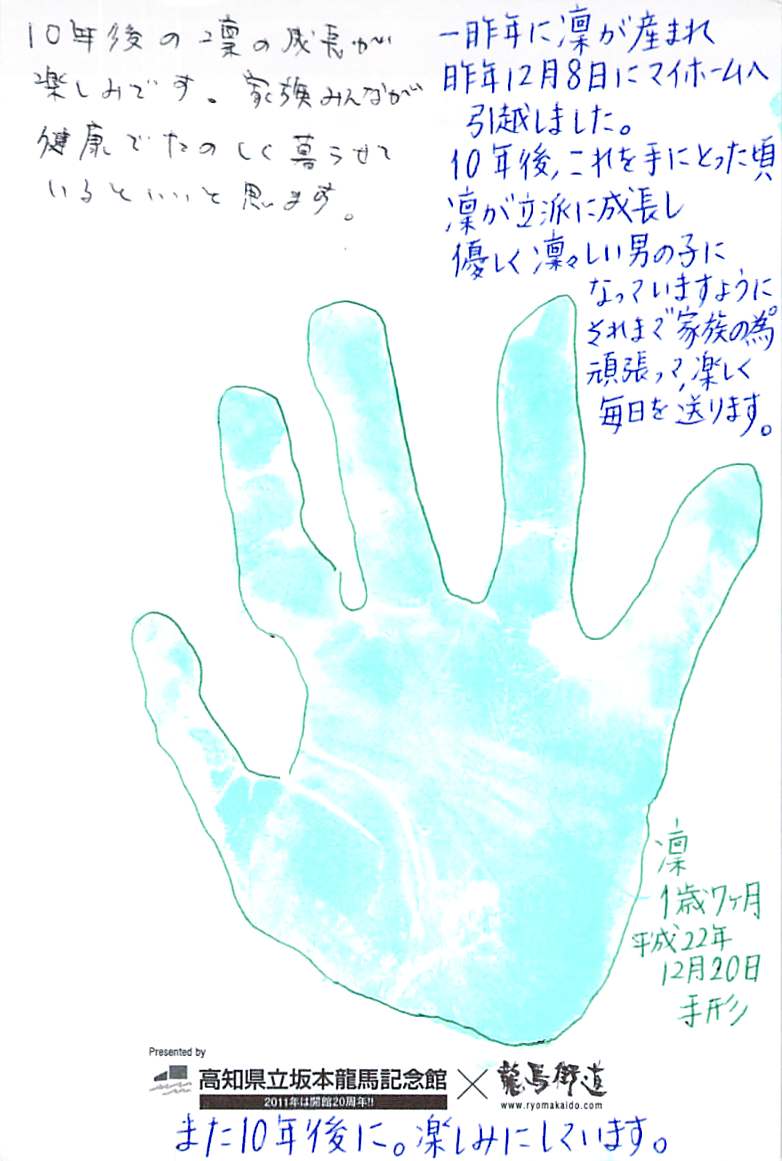 10年後の凛の成長が
楽しみです。家族みんなが
健康でたのしく暮らせて
いるといいと思います。
一昨年に凛が産まれ
昨年12月8日にマイホームへ
引越しました。
10年後、これを手にとった頃
凛が立派に成長し
優しく凛々しい男の子に
なっていますように。
それまで家族の為
頑張って、楽しく
毎日を送ります。
凛
1歳7ヶ月
平成22年
12月20日
手形
Presented by
高知県立坂本龍馬記念館×龍馬街道
2011年は開館20周年!!
www.ryomakaido.com
また10年後に。楽しみにしています。